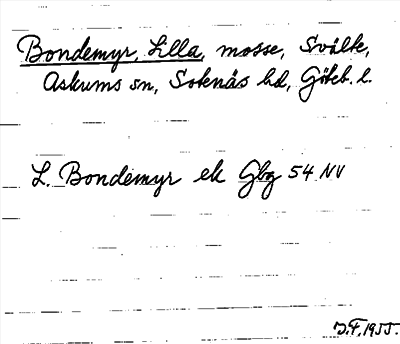 Bondemyr, Lilla, mosse, Svälte,
Askums sn, Sotenäs hd, Göteb. l.
L. Bondemyr ek Gbg 54 NV
J.F. 1955.